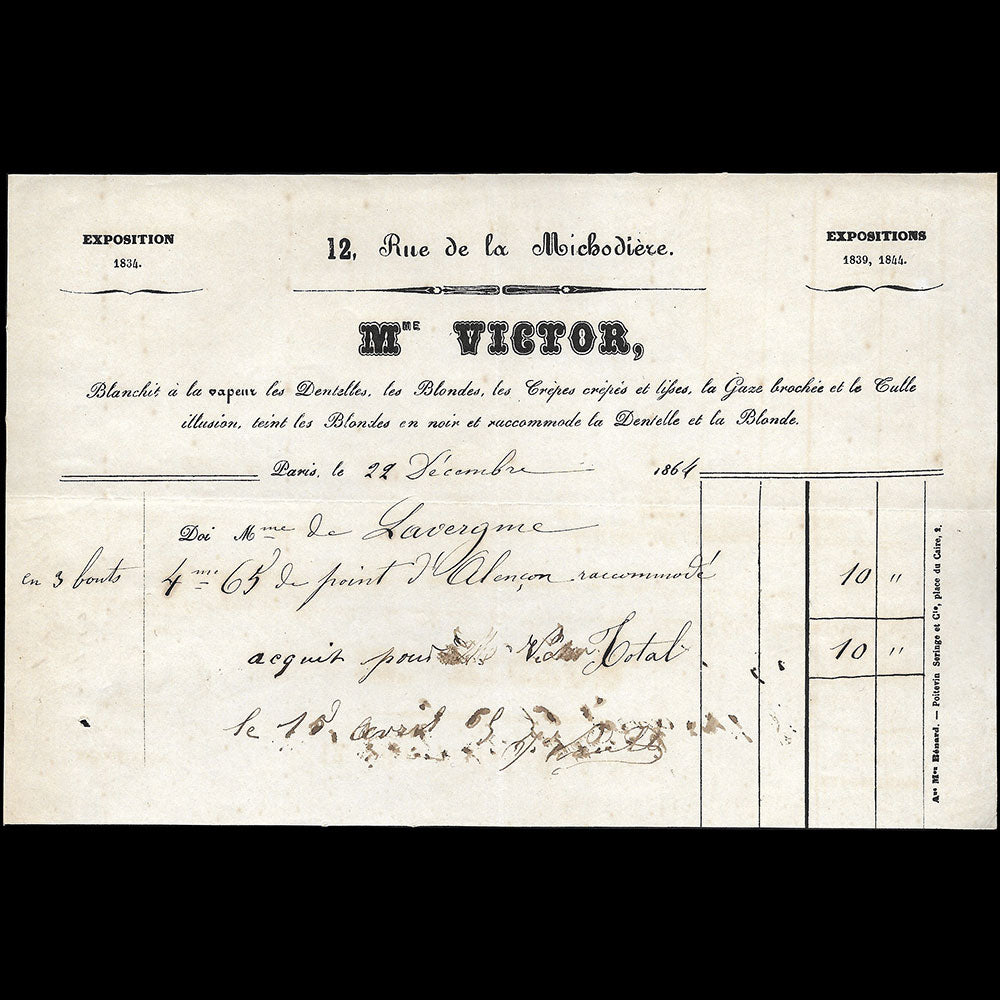 EXPOSITION
1834.
12, Rue de la Michodière.
EXPOSITIONS
1839, 1844.
Mme VICTOR,
Blanchit à la vapeur les Dentelles, les Blondes, les Crêpes crêpés et lisses, la Gaze brochée et le Tulle
illusion, teint les Blondes en noir et raccommode la Dentelle et la Blonde.
Paris, le 22 Décembre 1864
Doi Mme de Lavergne
en 3 bouts 4 me 65 de point d'Alençon raccommodé 10 "
acquit pour Total 10 "
le 15 avril 65
Anne Mon Bénard. — Poitevin Seringe et Cie, place du Caire, 2.